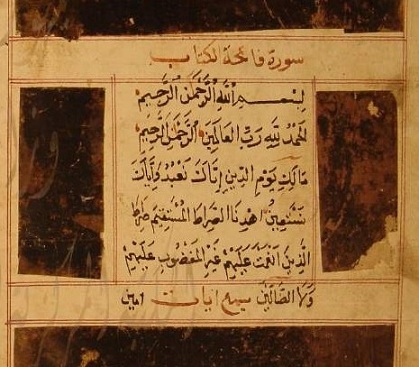 سورة فاتحة الكتاب
بِسْمِ اللَّهِ الرَّحْمَٰنِ الرَّحِيمِ
الْحَمْدُ لِلَّهِ رَبِّ الْعَالَمِينَ الرَّحْمَٰنِ الرَّحِيمِ
مَالِكِ يَوْمِ الدِّينِ إِيَّاكَ نَعْبُدُ وَإِيَّاكَ
نَسْتَعِينُ اهْدِنَا الصِّرَاطَ الْمُسْتَقِيمَ صِرَاطَ
الَّذِينَ أَنْعَمْتَ عَلَيْهِمْ غَيْرِ الْمَغْضُوبِ عَلَيْهِمْ
وَلَا الضَّالِّينَ سبع ايات امين